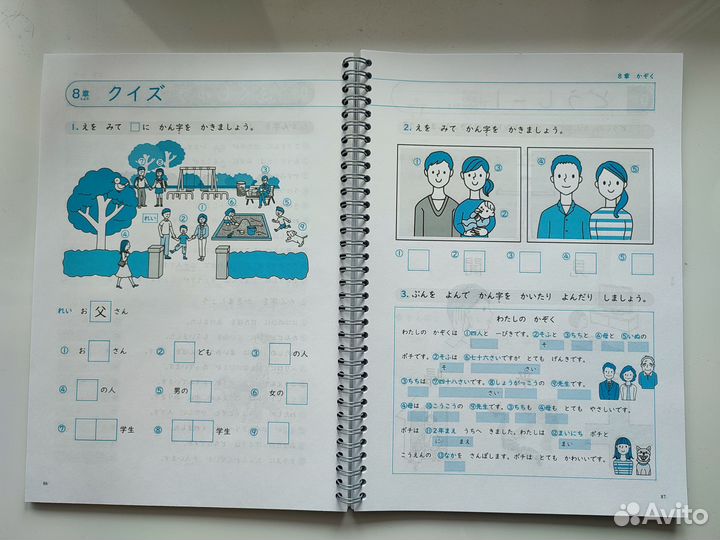 8章 クイズ
1. えを みて □に かん字を かきましょう。
⑦ ⑧ ③
れい ② ① ⑥ ⑤
④ ⑨
れい お 父 さん
① お さん ② ども ③ の人
④ の人 ⑤ 男の ⑥ 女の
⑦ 学生 ⑧ 学生 ⑨
86
8章 かぞく
2. えを みて かん字を かきましょう。
① ③ ② ④ ⑤
① ② ③ ④ ⑤
3. ぶんを よんで かん字を かいたり よんだり しましょう。
わたしの かぞく
わたしの かぞくは ①四人と 一ぴきです。②そふと ③ちちと ④母と ⑤いぬの
ポチです。②そふは ⑥七十六さいですが とても げんきです。
そ さい
③ちちは ⑦四十八さいです。⑧しょうがっこうの ⑨先生です。
さい
④母は ⑩こうこうの ⑨先生です。③ちちも ④母も とても やさしいです。
ポチは ⑪2年まえ うちへ きました。わたしは ⑫まいにち ポチと
に まえ まい
こうえんの ⑬なかを さんぽします。ポチは とても かわいいです。
87
Avito